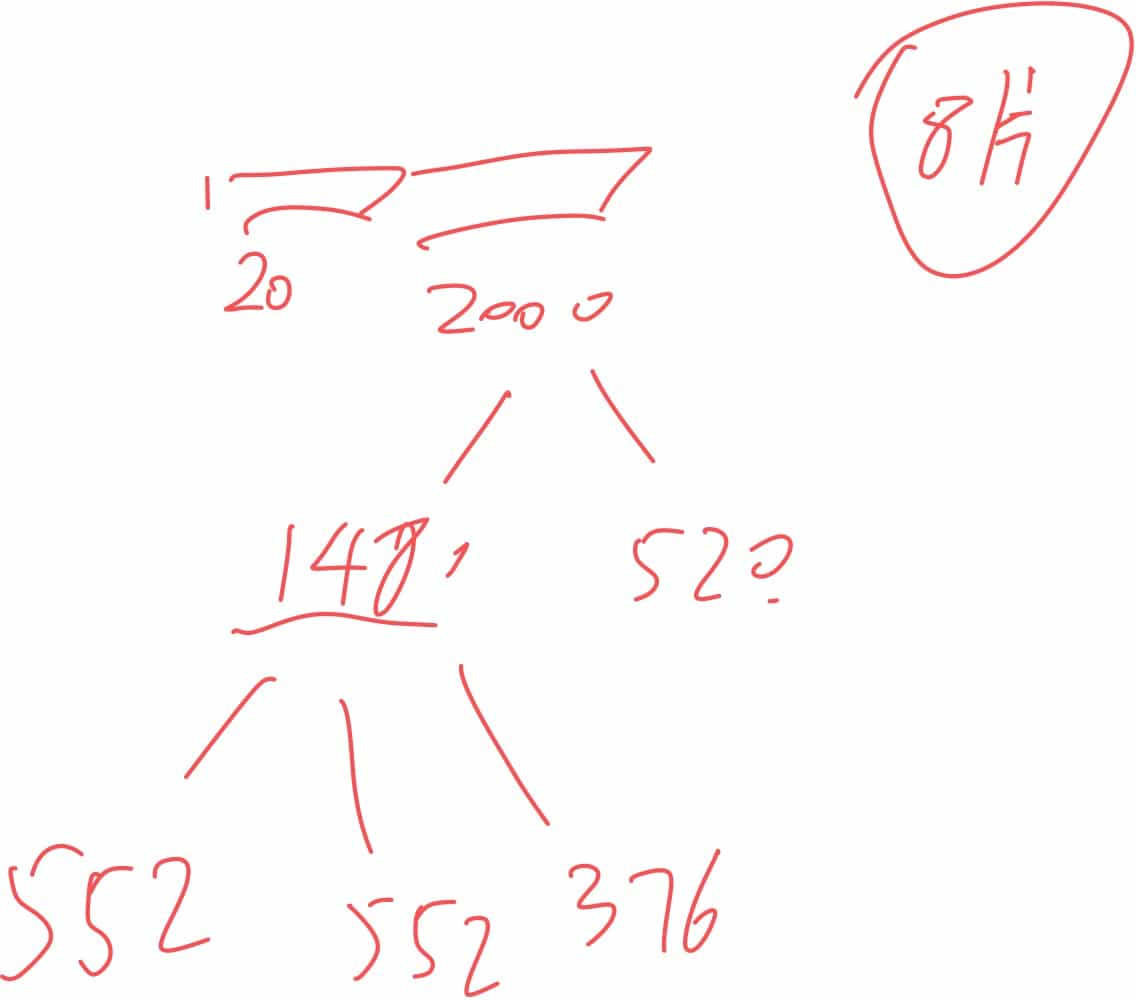 8片
20
2000
1480
520
552
552
376